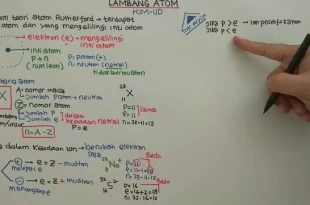 LAMBANG ATOM
KIM-UD
teori atom Rutherford → terdapat
atom yang mengelilingi inti
elektron (e) → mengelilingi
inti atom
inti atom
p + n
(nukleon)
p = proton (+)
n = neutron (netral)
tidak bermuatan
jika p > e → ion positif = kation
jika p < e
atom
X
A = nomor massa
Jumlah proton + neutron
Z = nomor atom
Jumlah p
Jumlah e
dalam
keadaan netral
n = A-Z
p = e
23
X
11
p = 11
e = 11
sama
n = 23-11 = 12
dalam keadaan ion → berubah elektron
saja
+ → e = Z - muatan
melepas e
- → e = Z + muatan
menangkap e
23 Na +
11
p = 11
e = 11-1 = 10
n = 23-11 = 12
Beda
32 S 2-
16
p = 16
e = 16+2 = 18
n = 32-16 = 16
Beda